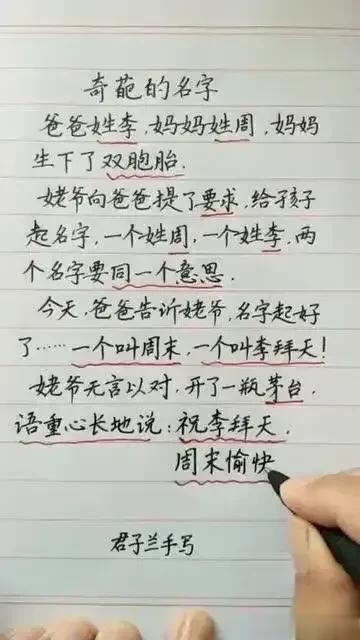 奇葩的名字
爸爸姓李，妈妈姓周，妈妈
生下了双胞胎.
姥爷向爸爸提了要求，给孩子
起名字，一个姓周，一个姓李，两
个名字要同一个意思.
今天，爸爸告诉姥爷，名字起好
了……一个叫周末，一个叫李拜天！
姥爷无言以对，开了一瓶茅台，
语重心长地说：祝李拜天.
周末愉快
君子兰手写